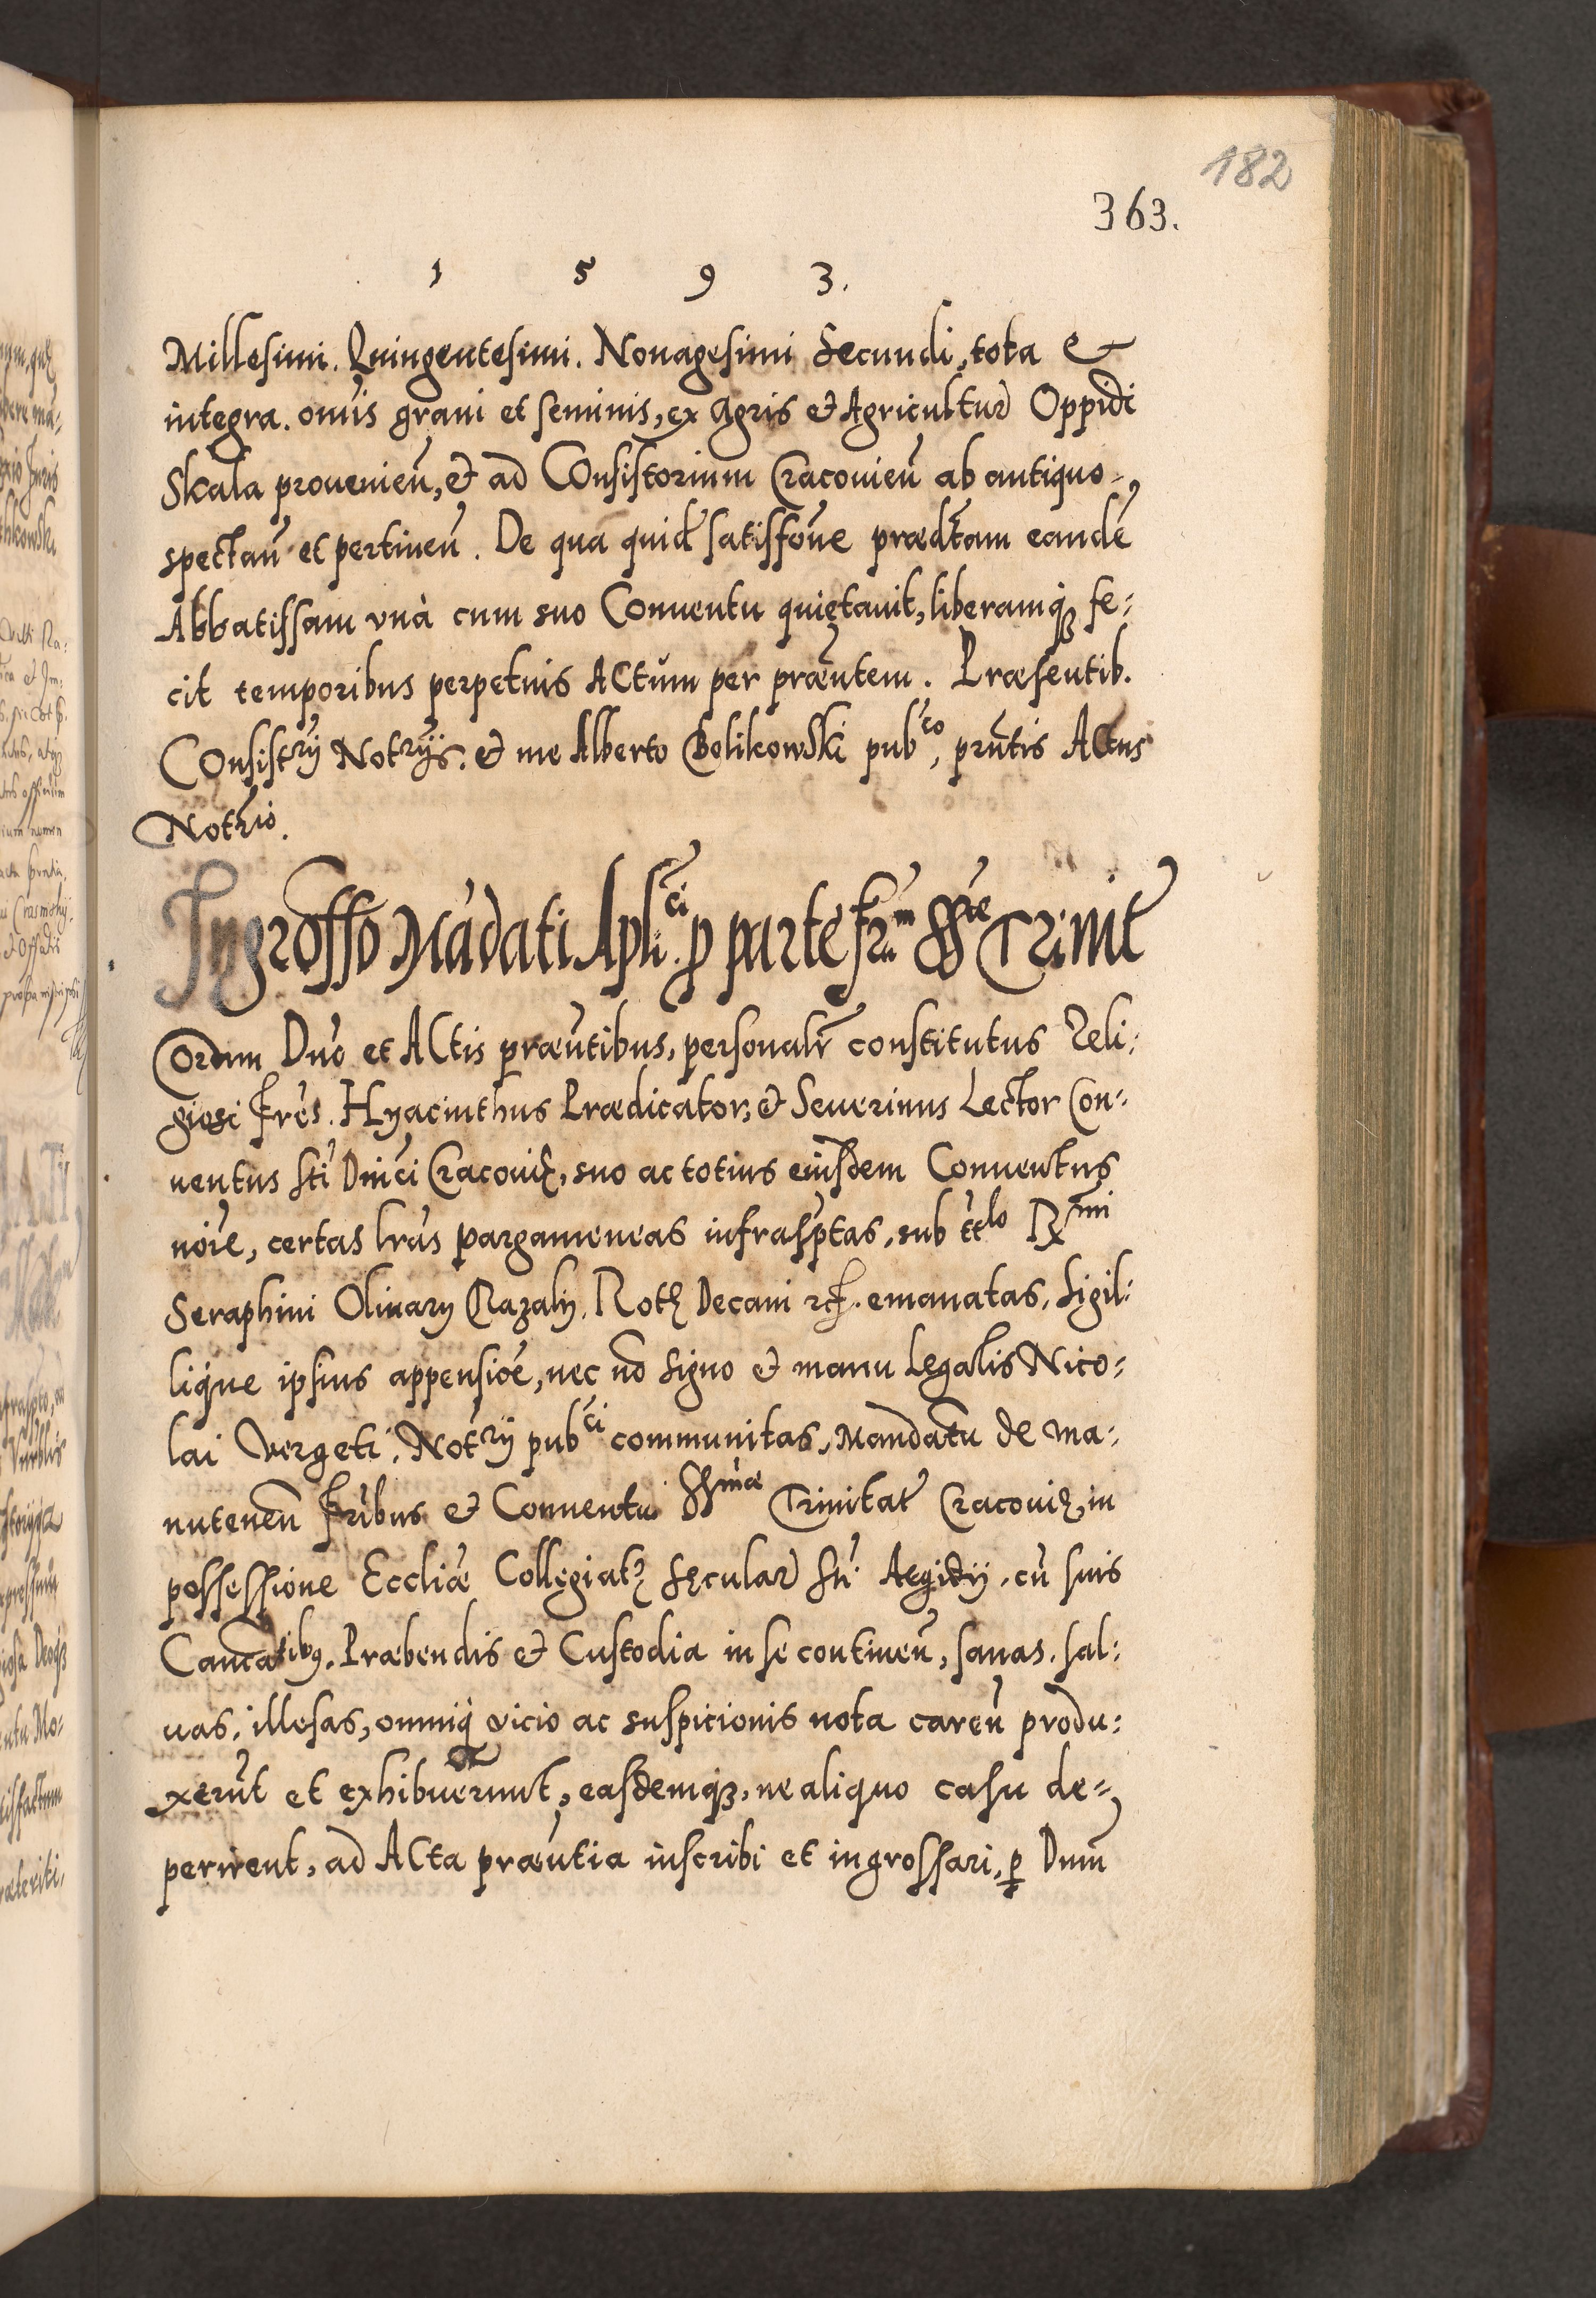 182
363.
1 5 9 3.
Millesimi. Quingentesimi. Nonagesimi Secundi, tota &
integra. omīs grani et seminis, ex Agris & Agricultur̃ Oppidi
Skala prouenieñ, & ad Consistorium Cracouieñ ab antiquo
spectañ et pertineñ. De qua quid̃ satisfōne prædc̃tam eandē
Abbatissam vnà cum suo Conuentu quietauit, liberamq3 fe:
cit temporibus perpetuis Actum per præñtem. Præsentib.
Consistrij Notrijs. & me Alberto Bolikowski pubco, prñtis Actus
Notrio.
Ingrosso Mādati Aplici p parte frm SSte Trinit̃
Coram Dnō et Actis præñtibus, personalr̃ constitutus Reli:
giosi Frēs. Hyacinthus Prædicator, & Seuerinus Lector Con:
uentus Sti Dnici Cracouię, suo ac totius eiusdem Conuentus
noīe, certas lrās pargameneas infrasptas, sub ttlo Rmi
Seraphini Oliuary Razalij, Rotę Decani etc. emanatas, Sigil:
lique ipsius appensiōe, nec nō signo & manu Legalis Nico:
lai Vergeti, Notrij pubci communitas, Mandatu de ma:
nuteneñ Fribus & Conuentu SSmæ Trinitat̃ Cracouię, in
possessione Eccliæ Collegiatę sęcular̃ Sti Aegidij, cū suis
Cancatibus, Præbendis & Custodia in se contineñ, sanas, sal:
uas, illesas, omniq3 vicio ac suspicionis nota careñ produ:
xerūt et exhibuerunt, easdemq3, ne aliquo casu de
perirent, ad Acta præñtia inscribi et ingrossari, p Dnum